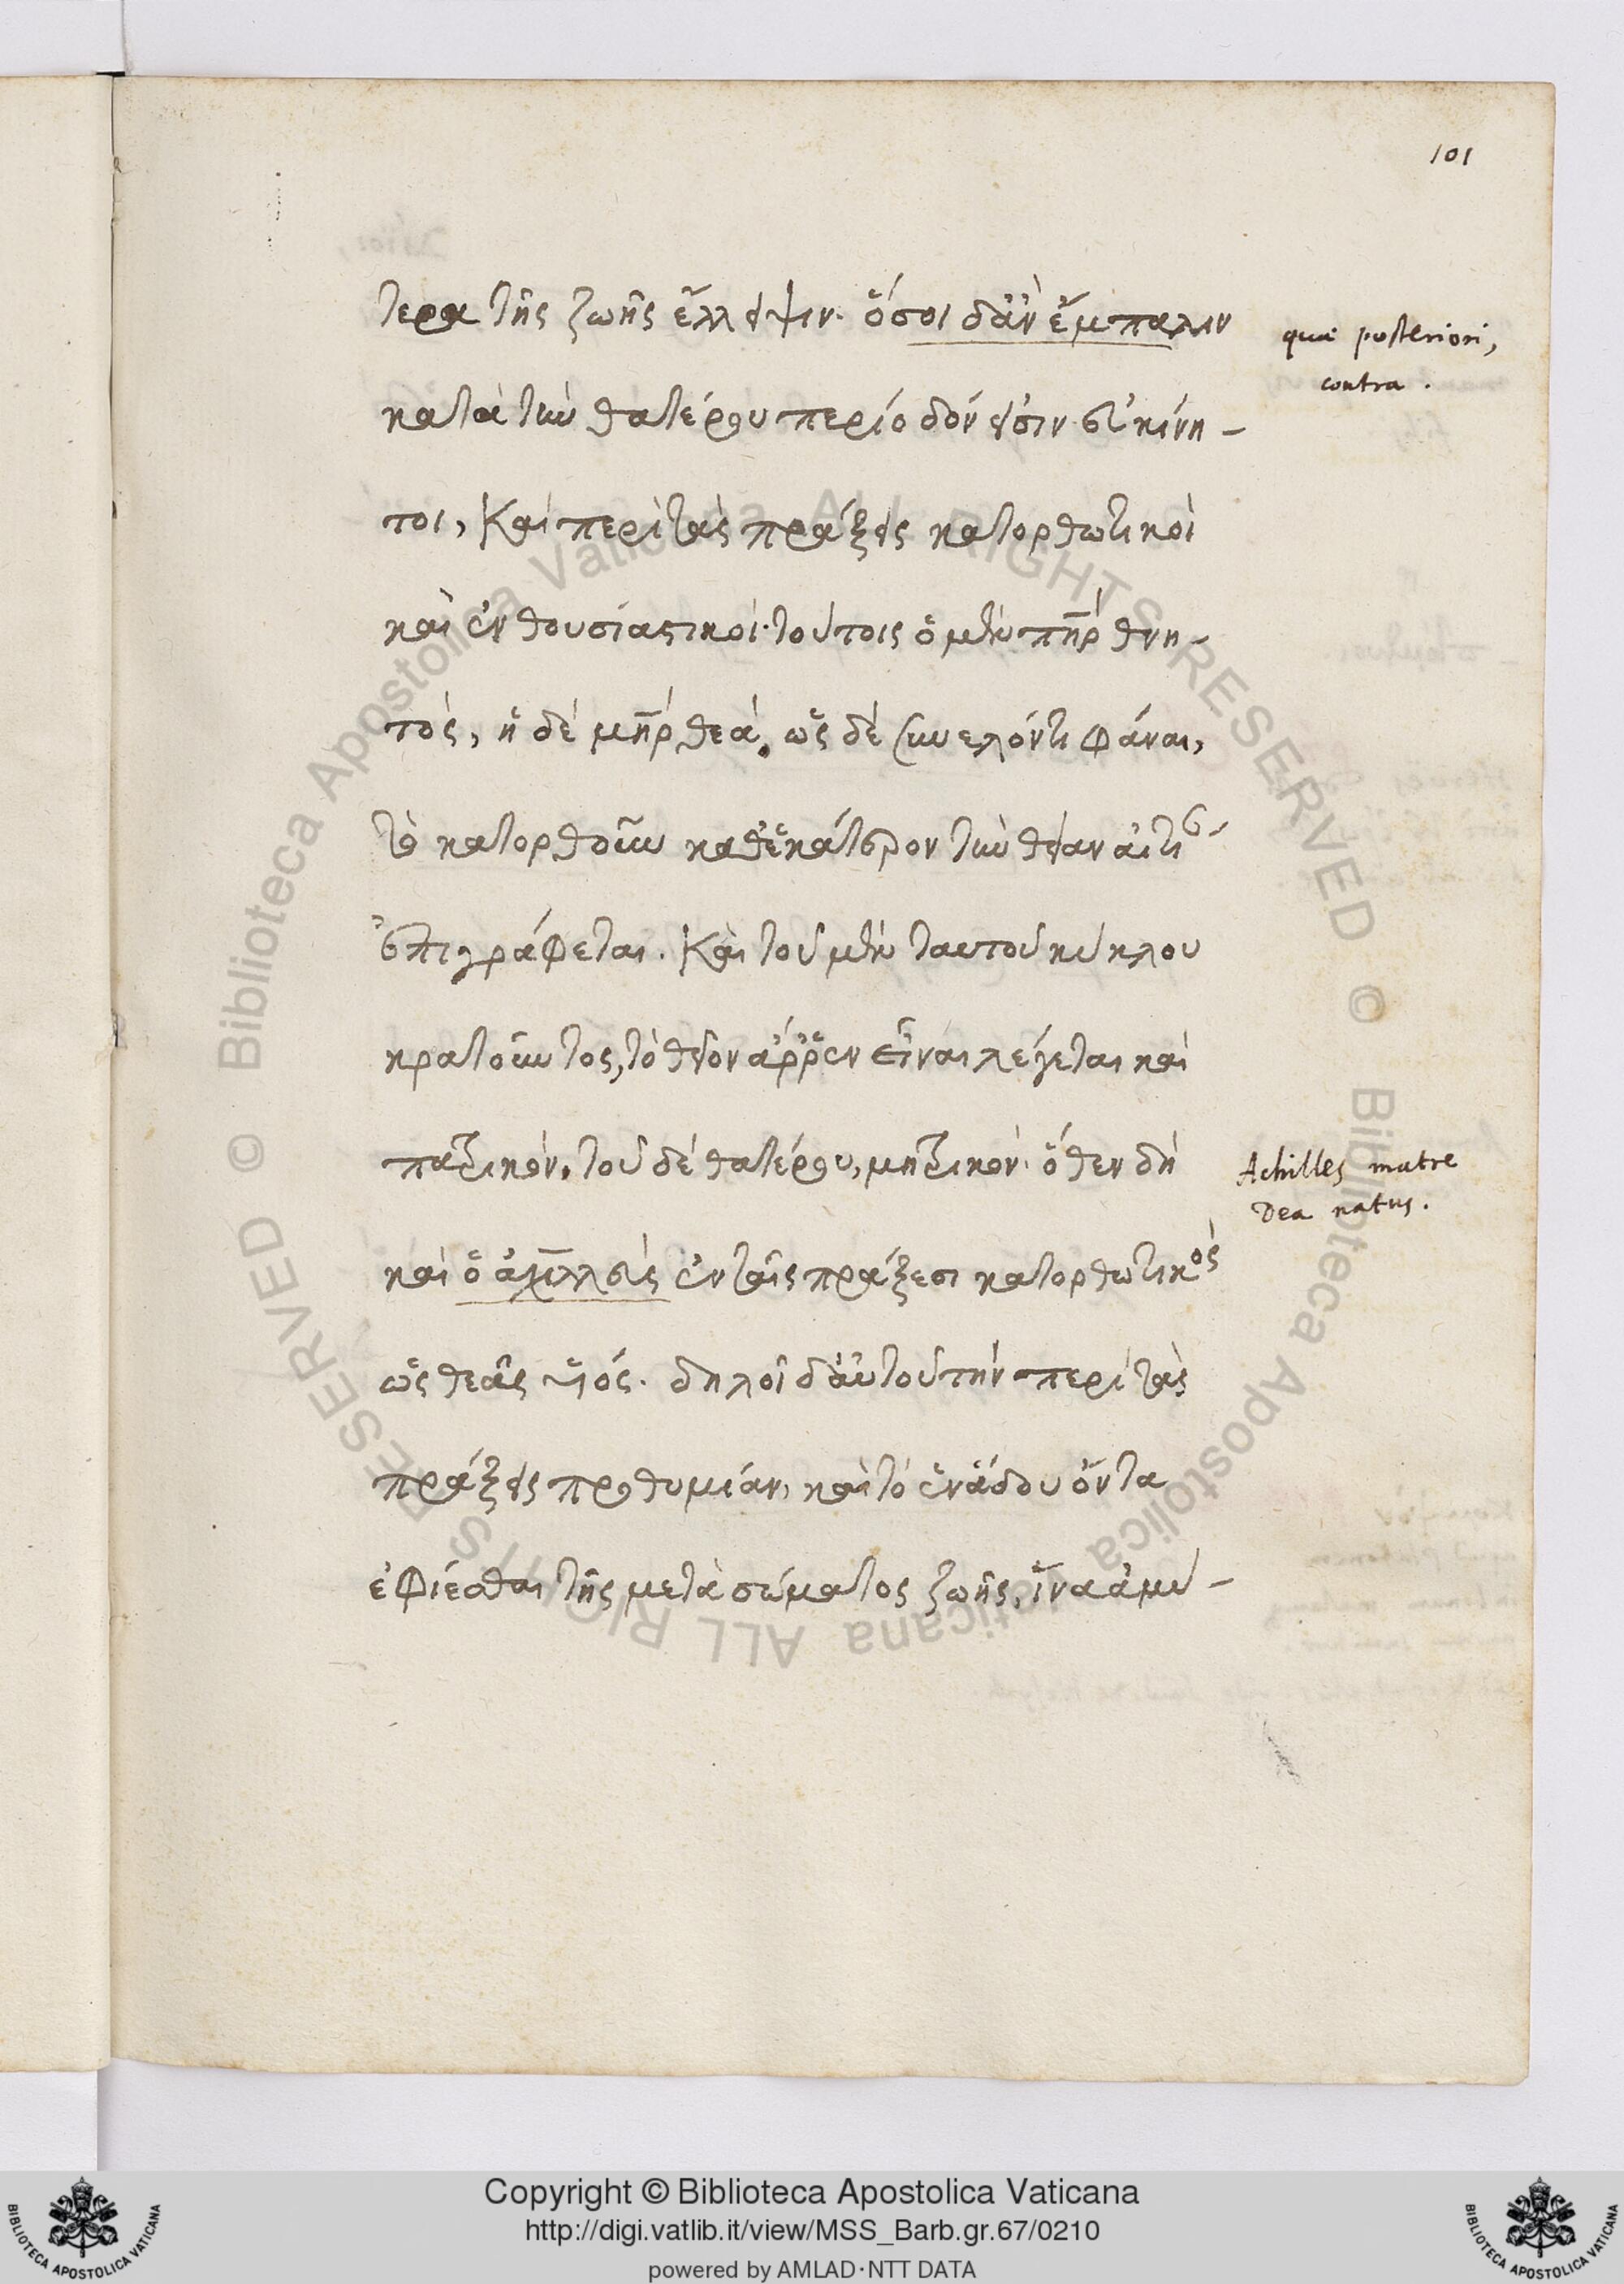 101
τερα τῆς ζωῆς ἔλλειψιν. ὅσοι δ' ἂν ἔμπαλιν
quae posteriori,
contra.
κατὰ τὴν θατέρου περίοδόν εἰσιν εὐκίνη-
τοι, καὶ περὶ τὰς πράξεις κατορθωτικοὶ
καὶ ἐνθουσιαστικοί. τούτοις ὁ μὲν πηρ θνη-
τὸς, ἡ δὲ μηρ θεά. ὡς δὲ συνελόντι φάναι,
τὸ κατορθοῦν καθ' ἑκάτερον τὴν θείαν αἰτι
ἐπιγράφεται. καὶ τοῦ μὲν ταυτοῦ κύκλου
κρατοῦντος, τὸ θεῖον ἄρρεν εἶναι λέγεται καὶ
πατρικόν. τοῦ δὲ θατέρου, μητρικόν. ὅθεν δὴ
Achilles matre
Dea natus.
καὶ ὁ ἀχιλλεὺς ἐν ταῖς πράξεσι κατορθωτικὸς
ὡς θεᾶς υἱός. δηλοῖ δ' αὐτοῦ τὴν περὶ τὰς
πράξεις προθυμίαν, καὶ τὸ ἐν ἅδου ὄντα
ἐφίεσθαι τῆς μετὰ σώματος ζωῆς, ἵνα ἀμύ-
© Biblioteca Apostolica Vaticana ALL RIGHTS RESERVED
© Biblioteca Apostolica Vaticana ALL RIGHTS RESERVED
Copyright © Biblioteca Apostolica Vaticana
http://digi.vatlib.it/view/MSS_Barb.gr.67/0210
powered by AMLAD·NTT DATA
BIBLIOTECA APOSTOLICA VATICANA
BIBLIOTECA APOSTOLICA VATICANA